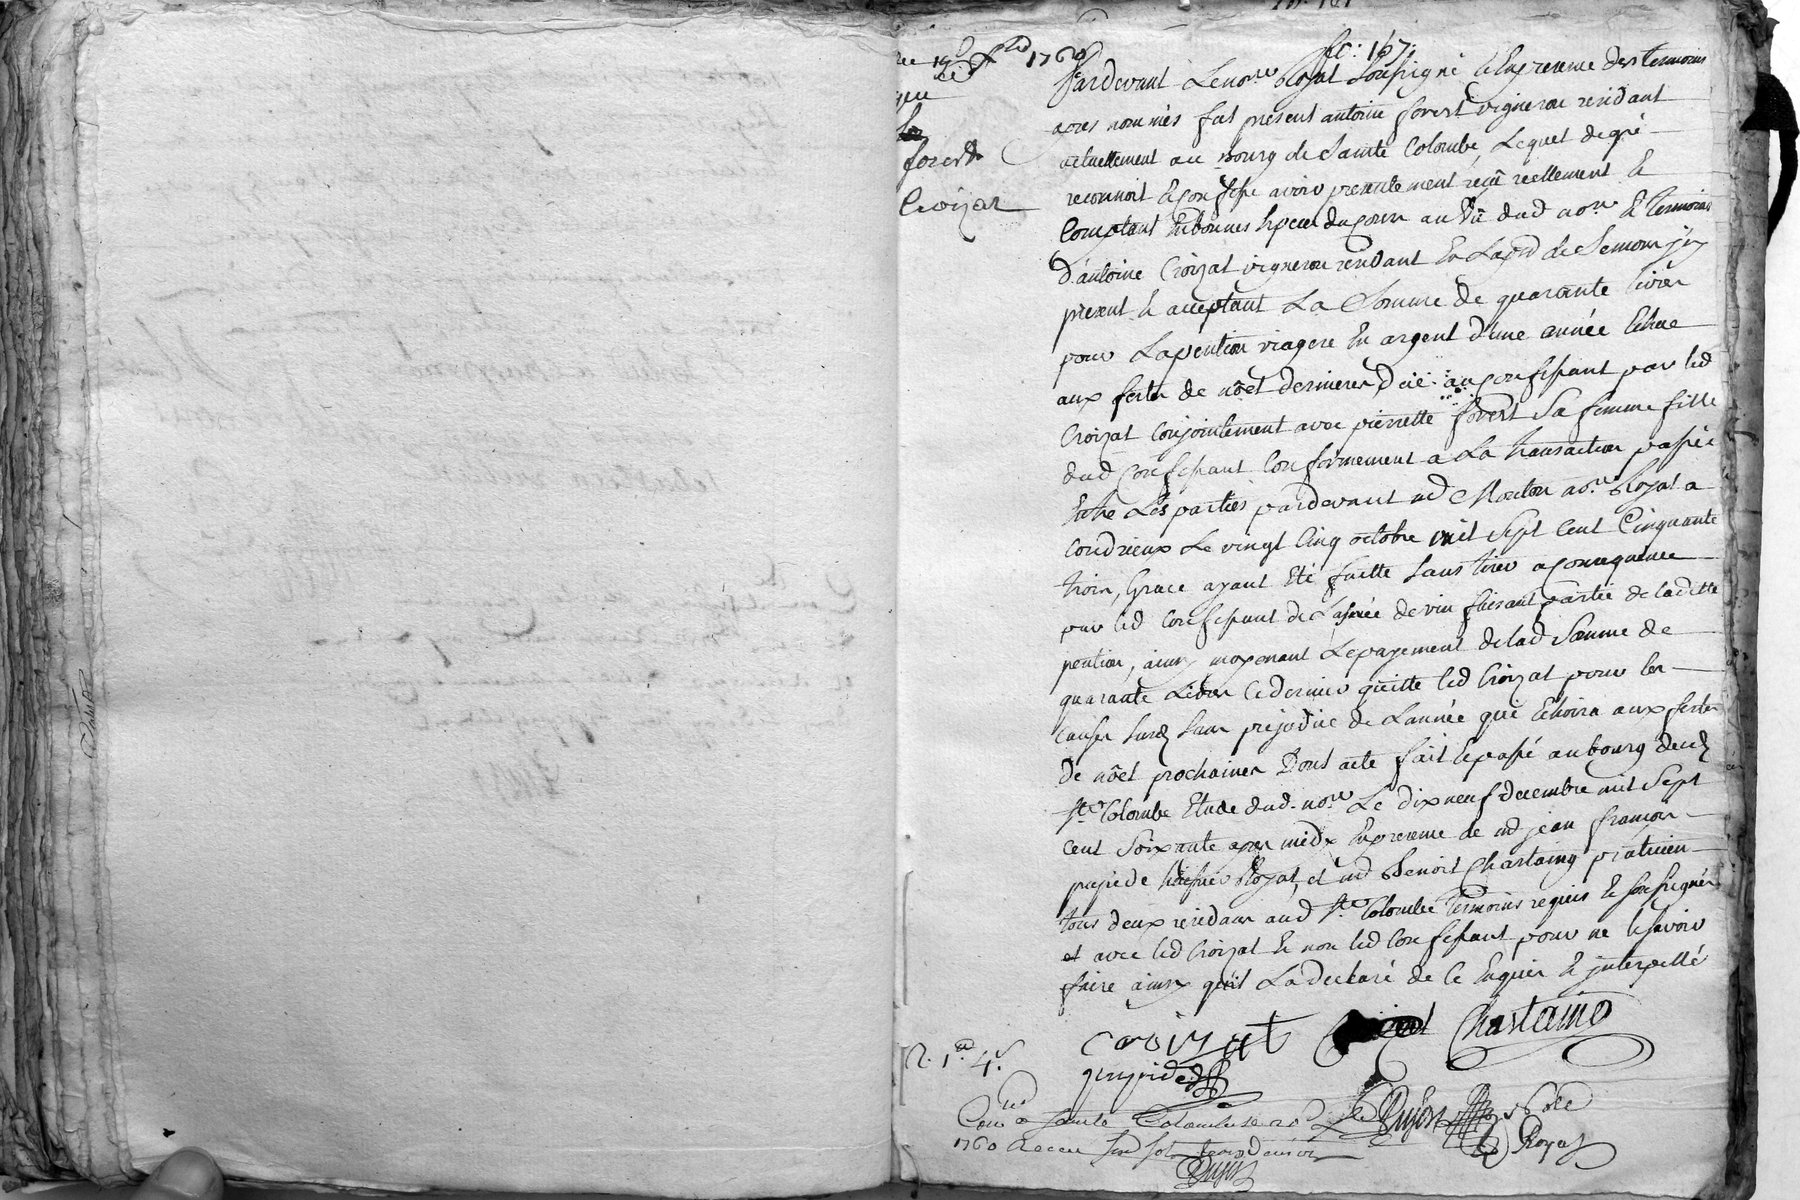 fo: 167.
1760
forest
Croizat
Pardevant Le no.re Royal Soussigné & En presence des temoins
apres nommés fut present antoine forest vigneron residant
actuellement au Bourg de Sainte Colombe, Lequel de gré
reconnoit & confesse avoir presentement reçu reellement &
Comptant En bonnes Especes du cours au Vû dud no.re & temoins
d'antoine Croizat vigneron residant En La p.sse de Semons, icy
present & acceptant La Somme de quarante livres
pour La pention viagere En argent d'une année Echue
aux festes de nöel dernieres, düe au confessant par led
Croizat Conjointement avec pierrette forest Sa femme fille
dud Confessant Conformement a La transaction passée
Entre Les parties pardevant m.e Mouton no.re Royal a
Condrieux Le vingt Cinq octobre mil Sept Cent Cinquante
trois, Grace ayant Eté faitte Sans tirer a consequence
par led Confessant de L'asnée de vin faisant partie de laditte
pention, ainsy moyenant Le payement de lad Somme de
quarante Livres Ce dernier quitte led Croizat pour les
causes Susd. Sans prejudice de L'année qui Echoira aux festes
de nöel prochaines Dont acte fait & passé au bourg dud
S.te Colombe Etude dud. no.re Le dix neuf decembre mil Sept
Cent Soixante apres midy En presence de m.e jean françois
huissier Royal, et m.e Benoit Chastaing praticien
tous deux residans aud S.te Colombe temoins requis & Soussignés
et avec led Croizat & non led Confessant pour ne le Savoir
faire ainsy qu'il La declaré de Ce Enquis & interpellé
croizat Chastaing
Con.lé a Sainte Colombe le 20
1760 Receu
Royal